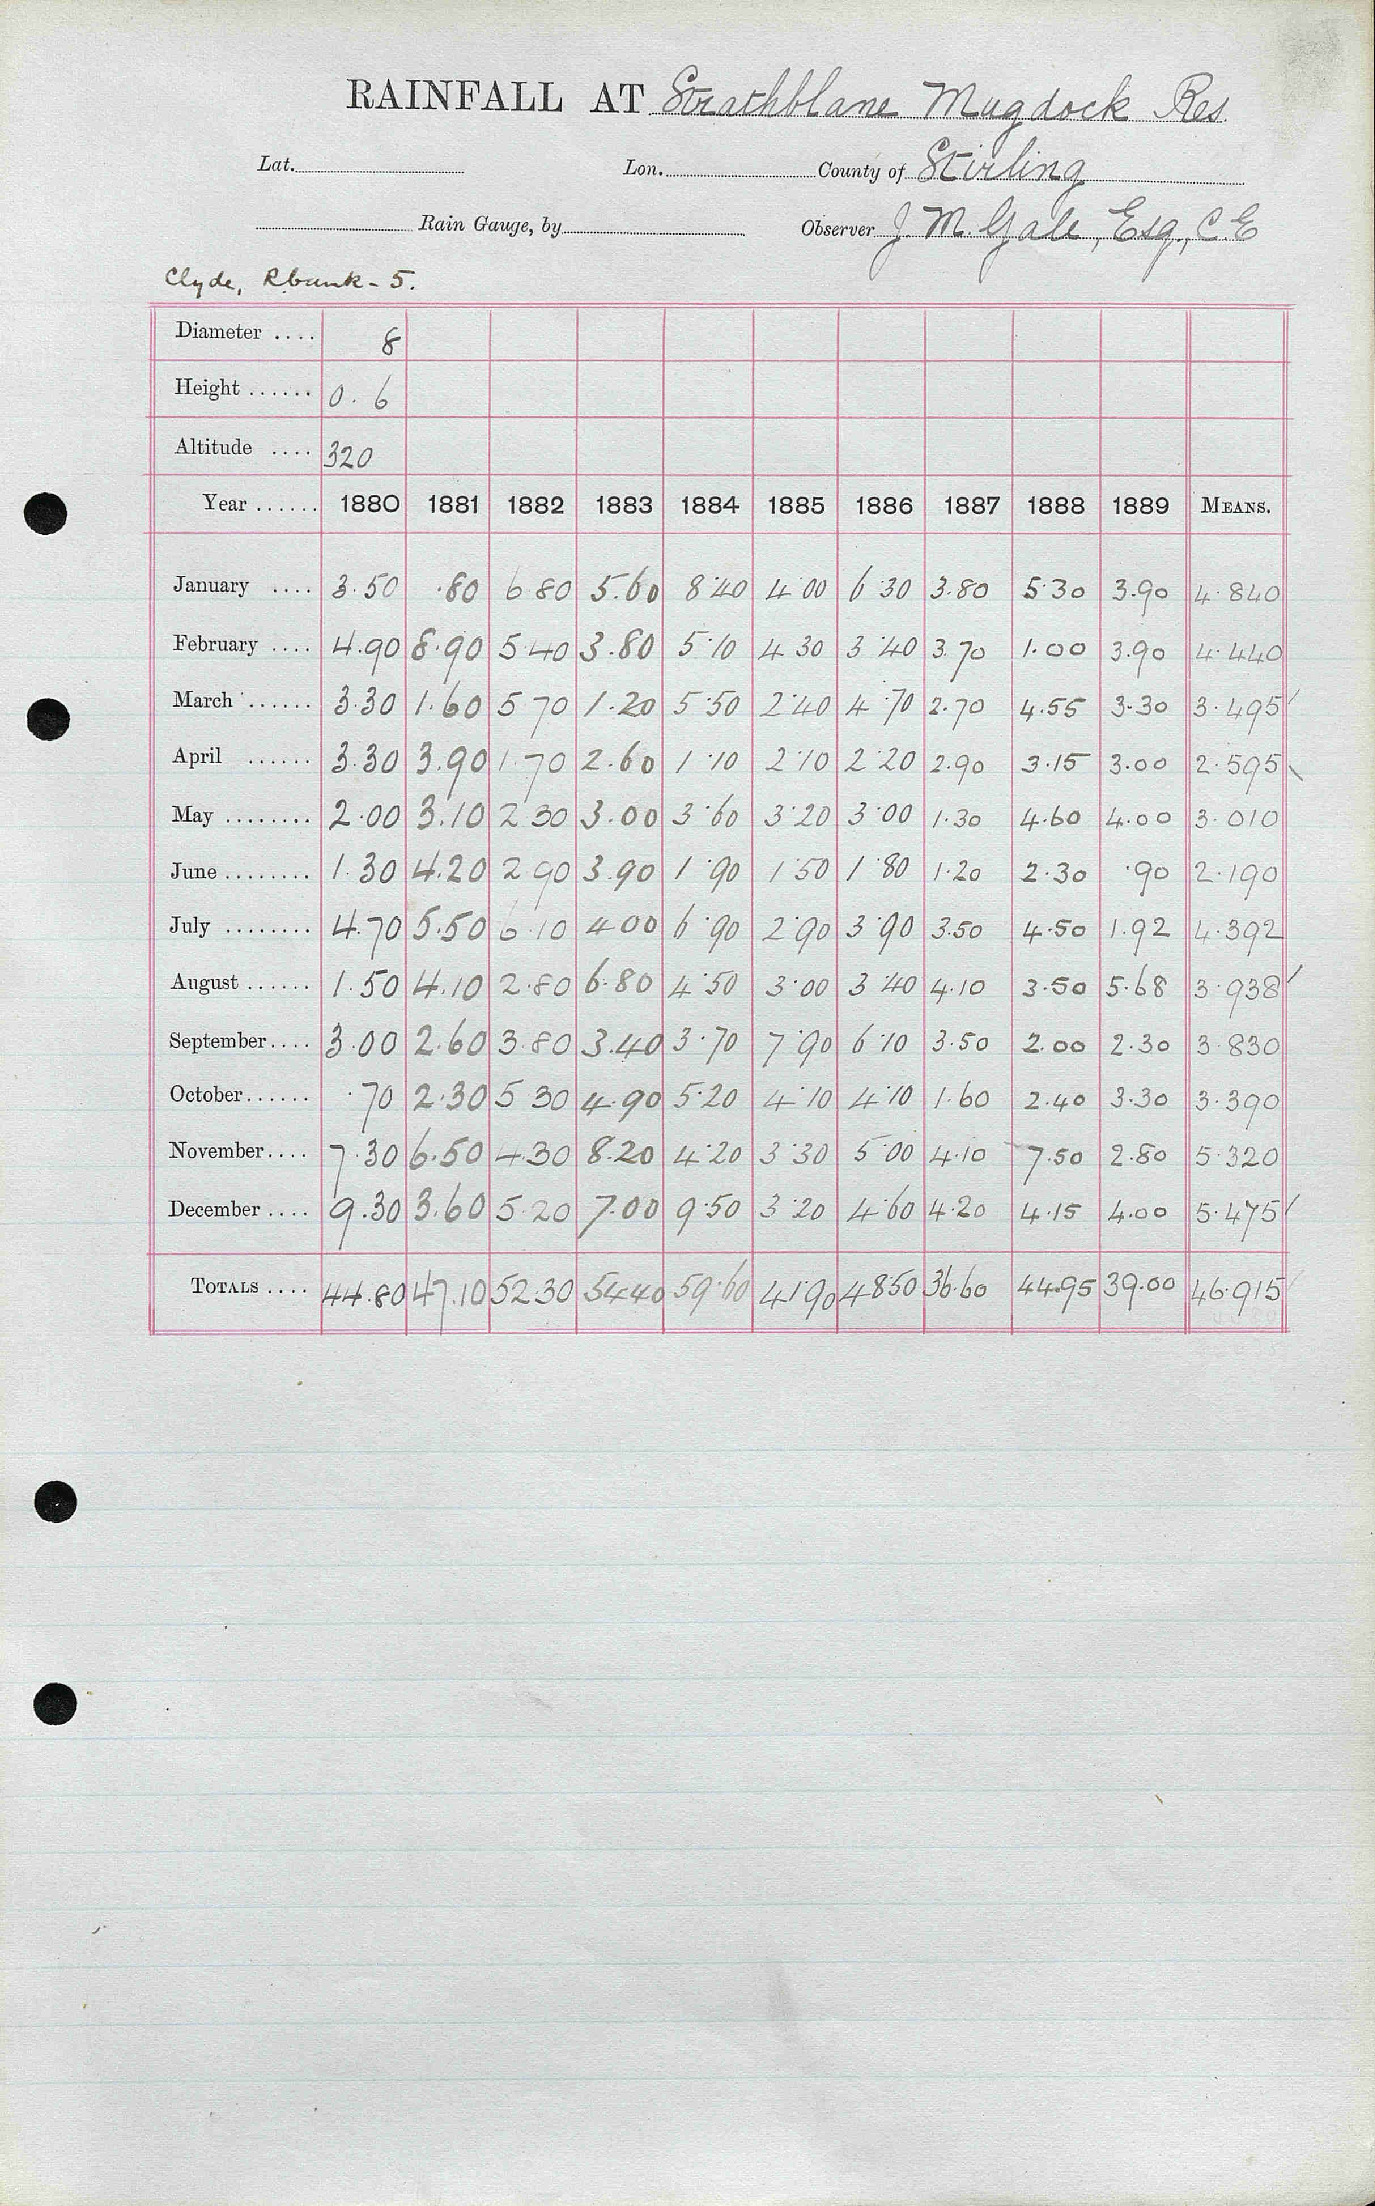 RAINFALL AT Strathblane Mugdock Res.
Lat. Lon. County of Stirling
Rain Gauge, by Observer J. M. Gale, Esq., C.E
Clyde, Rbank - 5.
Diameter .... 8
Height ...... 0.6
Altitude .... 320
Year ...... 1880 1881 1882 1883 1884 1885 1886 1887 1888 1889 MEANS.
January .... 3.50 .80 6.80 5.60 8.40 4.00 6.30 3.80 5.30 3.90 4.840
February .... 4.90 8.90 5.40 3.80 5.10 4.30 3.40 3.70 1.00 3.90 4.440
March ...... 3.30 1.60 5.70 1.20 5.50 2.40 4.70 2.70 4.55 3.30 3.495
April ...... 3.30 3.90 1.70 2.60 1.10 2.10 2.20 2.90 3.15 3.00 2.595
May ........ 2.00 3.10 2.30 3.00 3.60 3.20 3.00 1.30 4.60 4.00 3.010
June ........ 1.30 4.20 2.90 3.90 1.90 1.50 1.80 1.20 2.30 .90 2.190
July ........ 4.70 5.50 6.10 4.00 6.90 2.90 3.90 3.50 4.50 1.92 4.392
August ...... 1.50 4.10 2.80 6.80 4.50 3.00 3.40 4.10 3.50 5.68 3.938
September .... 3.00 2.60 3.80 3.40 3.70 7.90 6.10 3.50 2.00 2.30 3.830
October ...... .70 2.30 5.30 4.90 5.20 4.10 4.10 1.60 2.40 3.30 3.390
November .... 7.30 6.50 4.30 8.20 4.20 3.30 5.00 4.10 7.50 2.80 5.320
December .... 9.30 3.60 5.20 7.00 9.50 3.20 4.60 4.20 4.15 4.00 5.475
TOTALS .... 44.80 47.10 52.30 54.40 59.60 41.90 48.50 36.60 44.95 39.00 46.915